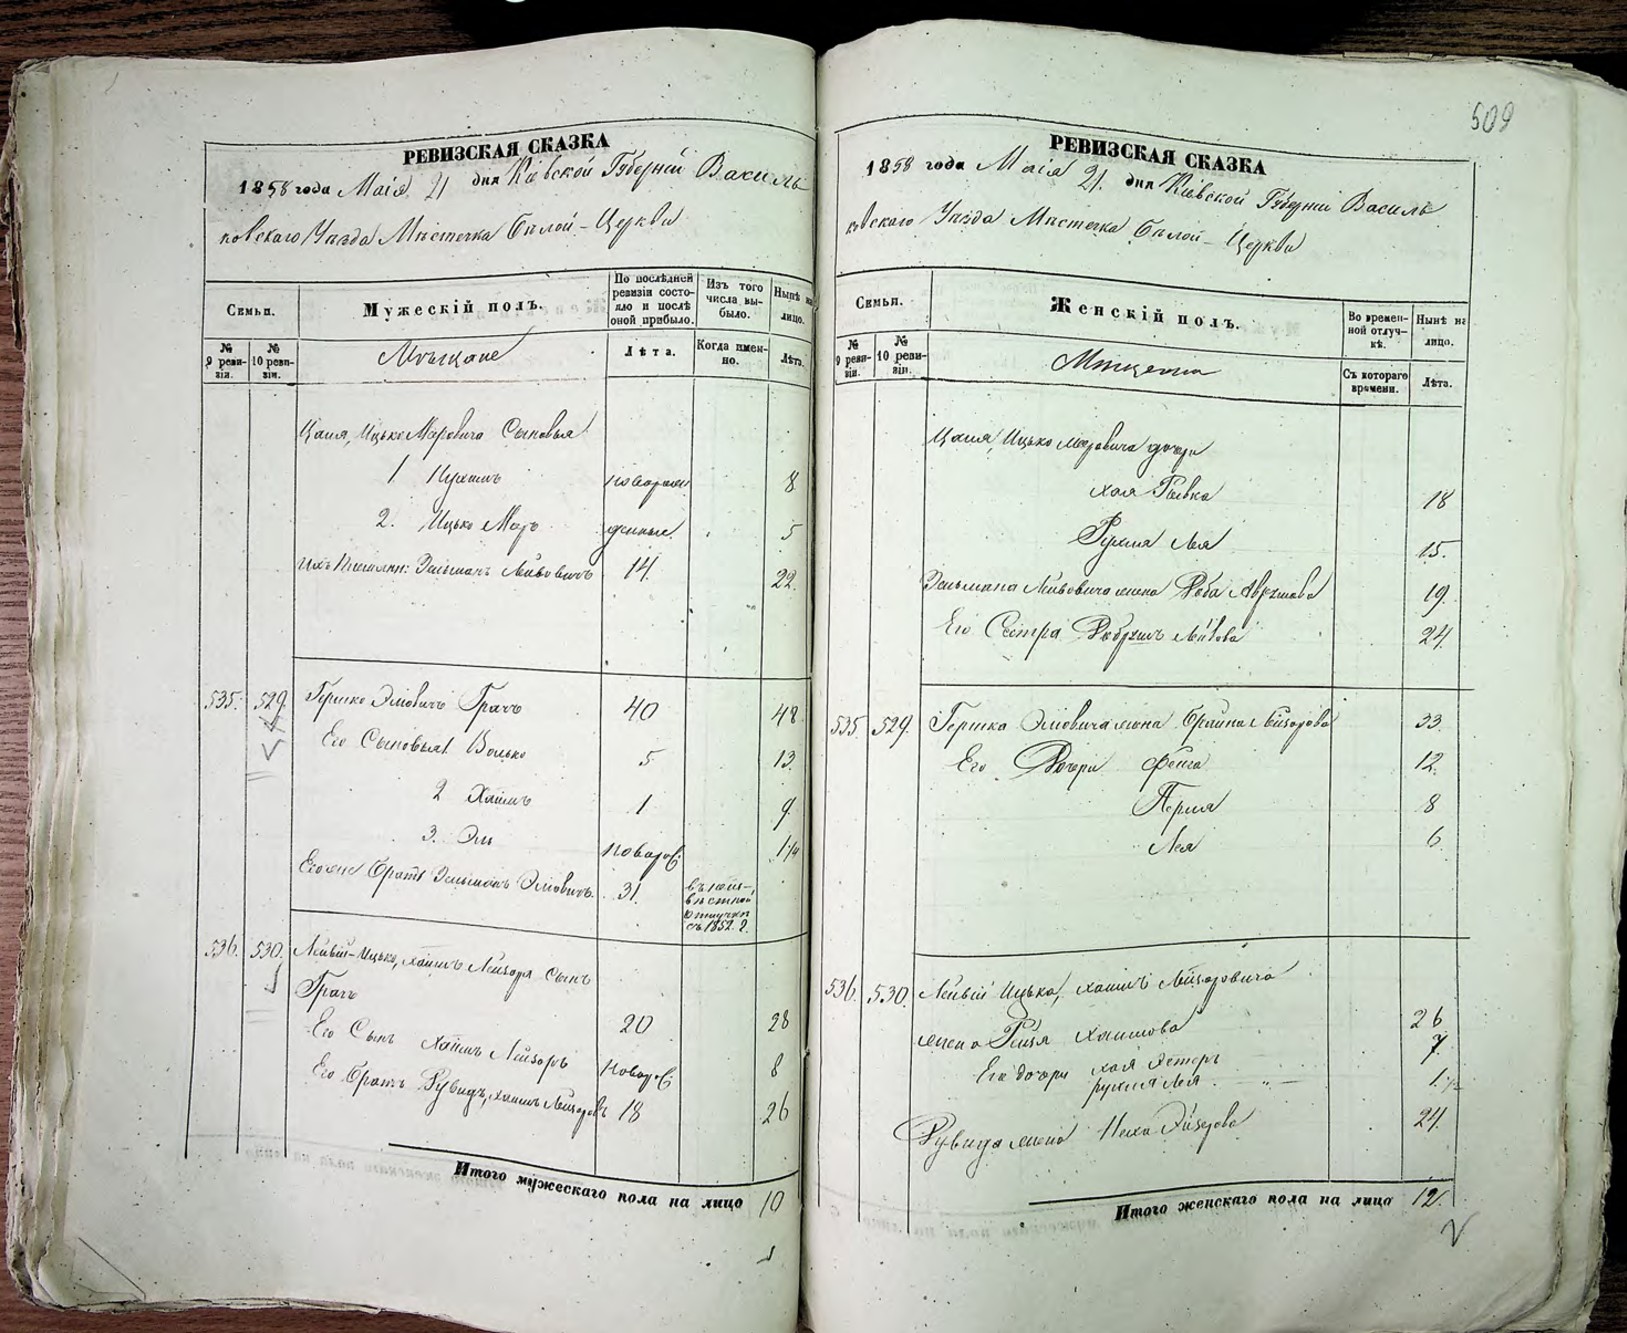 509
РЕВИЗСКАЯ СКАЗКА
1858 года Маія 21 дня Кіевской Губерніи Василь
ковскаго Уѣзда Мѣстечка Бѣлой-Церкви
Семьи.
Мужескій полъ.
По послѣдней ревизіи состояло и послѣ оной прибыло.
Изъ того числа выбыло.
Нынѣ на лицо.
№ 9 ревизіи.
№ 10 ревизіи.
Мѣщане
Лѣта.
Когда именно.
Лѣта.
Ицько Меровича Сыновья
1 Нухимъ новорож 8
2. Ицько Меръ денные. 5
Ихъ Племян: Зельманъ Лейбовичъ 14. 22.
535. 529. Гершко Эліовичъ Грачъ 40 48
Его Сыновья 1. Волько 5 13.
2 Хаимъ 1 9.
3. Эль новорож:
Его же Братъ Зельманъ Эліовичъ. 31.
въ неиз-
вѣстной
отлучкѣ
съ 1852 г.
536. 530. Лейбій-Ицько, Хаимъ Лейзоря Сынъ
Грачъ 20 28
Его Сынъ Хаимъ Лейзоръ новорож: 8
Его Братъ Рувидъ, Хаимъ Лейзоровъ 18 26
Итого мужескаго пола на лицо 10
РЕВИЗСКАЯ СКАЗКА
1858 года Маія 21. дня Кіевской Губерніи Василь
ковскаго Уѣзда Мѣстечка Бѣлой-Церкви
Семьи.
Женскій полъ.
Во временной отлучкѣ.
Нынѣ на лицо.
№ 9 ревизіи.
№ 10 ревизіи.
Съ котораго времени.
Лѣта.
Ицько Меровича дочери
Хая Ривка 18
Рухля Лея 15.
Зельмана Лейбовича жена Авруmова 19.
Его Сестра Лейбова 24.
535. 529. Гершка Эліовича жена 33.
Его Дочери Фейга 12.
Перля 8
Лея 6.
536. 530. Лейбій Ицька, Хаимъ Лейзоровича
жена Рейзя Хаимова 26
Его дочери Хая Эстеръ 7.
рухля Лея
Рувида жена 24.
Итого женскаго пола на лицо 12.